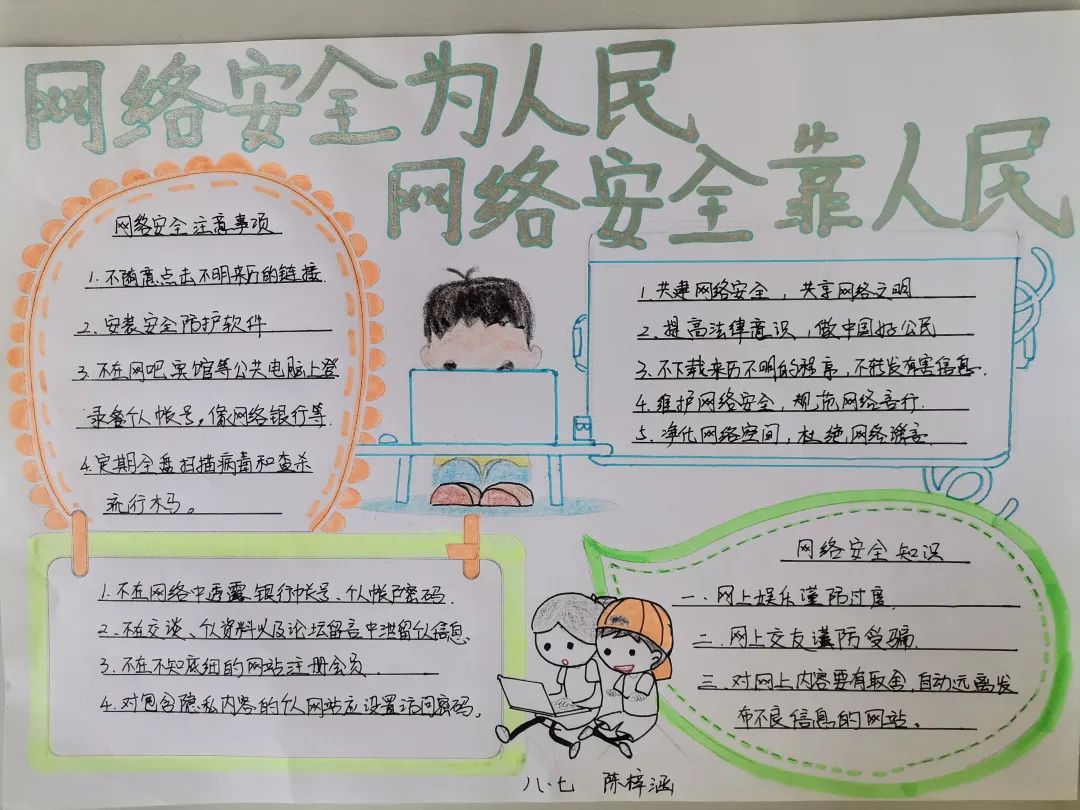 网络安全为人民
网络安全靠人民
网络安全注意事项
1.不随意点击不明来历的链接.
2.安装安全防护软件
3.不在网吧宾馆等公共电脑上登
录餐个人帐号,像网络银行等.
4.定期全盘扫描病毒和查杀
流行木马。
1.共建网络安全,共享网络文明
2.提高法律意识,做中国好公民
3.不下载来历不明的程序,不转发有害信息.
4.维护网络安全,规范网络言行.
5.净化网络空间,杜绝网络谣言.
1.不在网络中透露银行帐号、个人帐户密码.
2.不在交谈、个人资料以及论坛留言中泄留个人信息
3.不在不知底细的网站注册会员.
4.对包含隐私内容的个人网站应设置访问密码.
网络安全知识
一.网上娱乐谨防过度.
二.网上交友谨防受骗.
三.对网上内容要有取舍,自动远离发
布不良信息的网站。
八.七 陈梓涵